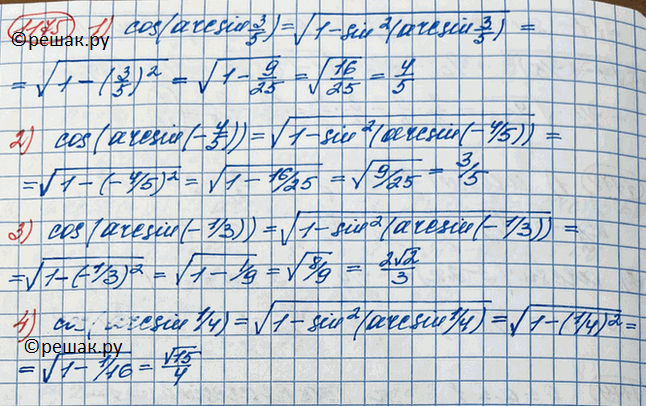 1175 1) cos(arcsin 3/5) = √(1-sin²(arcsin 3/5)) =
©решак.ру
= √(1-(3/5)²) = √(1-9/25) = √(16/25) = 4/5
2) cos(arcsin(-4/5)) = √(1-sin²(arcsin(-4/5))) =
= √(1-(-4/5)²) = √(1-16/25) = √(9/25) = 3/5
3) cos(arcsin(-1/3)) = √(1-sin²(arcsin(-1/3))) =
= √(1-(-1/3)²) = √(1-1/9) = √(8/9) = 2√2/3
4) cos(arcsin 1/4) = √(1-sin²(arcsin 1/4)) = √(1-(1/4)²) =
©решак.ру
= √(1-1/16) = √15/4